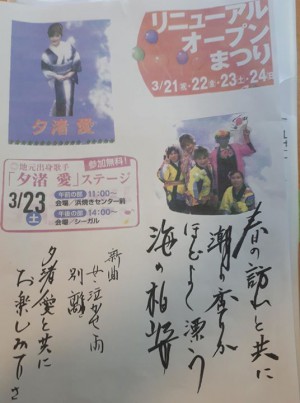 夕渚 愛
リニューアル
オープン
まつり
3/21㊍・22㊎・23㊏・24㊐
地元出身歌手
参加無料!
「夕渚 愛」ステージ
3/23
土
午前の部 11:00〜
会場/浜焼きセンター前
午後の部 14:00〜
会場/シーガル
春の訪れと共に
潮の香りが
ほどよく漂う
海の柏崎
新曲
女泣かせの雨
別離
夕渚愛と共に
お楽しみ下さ